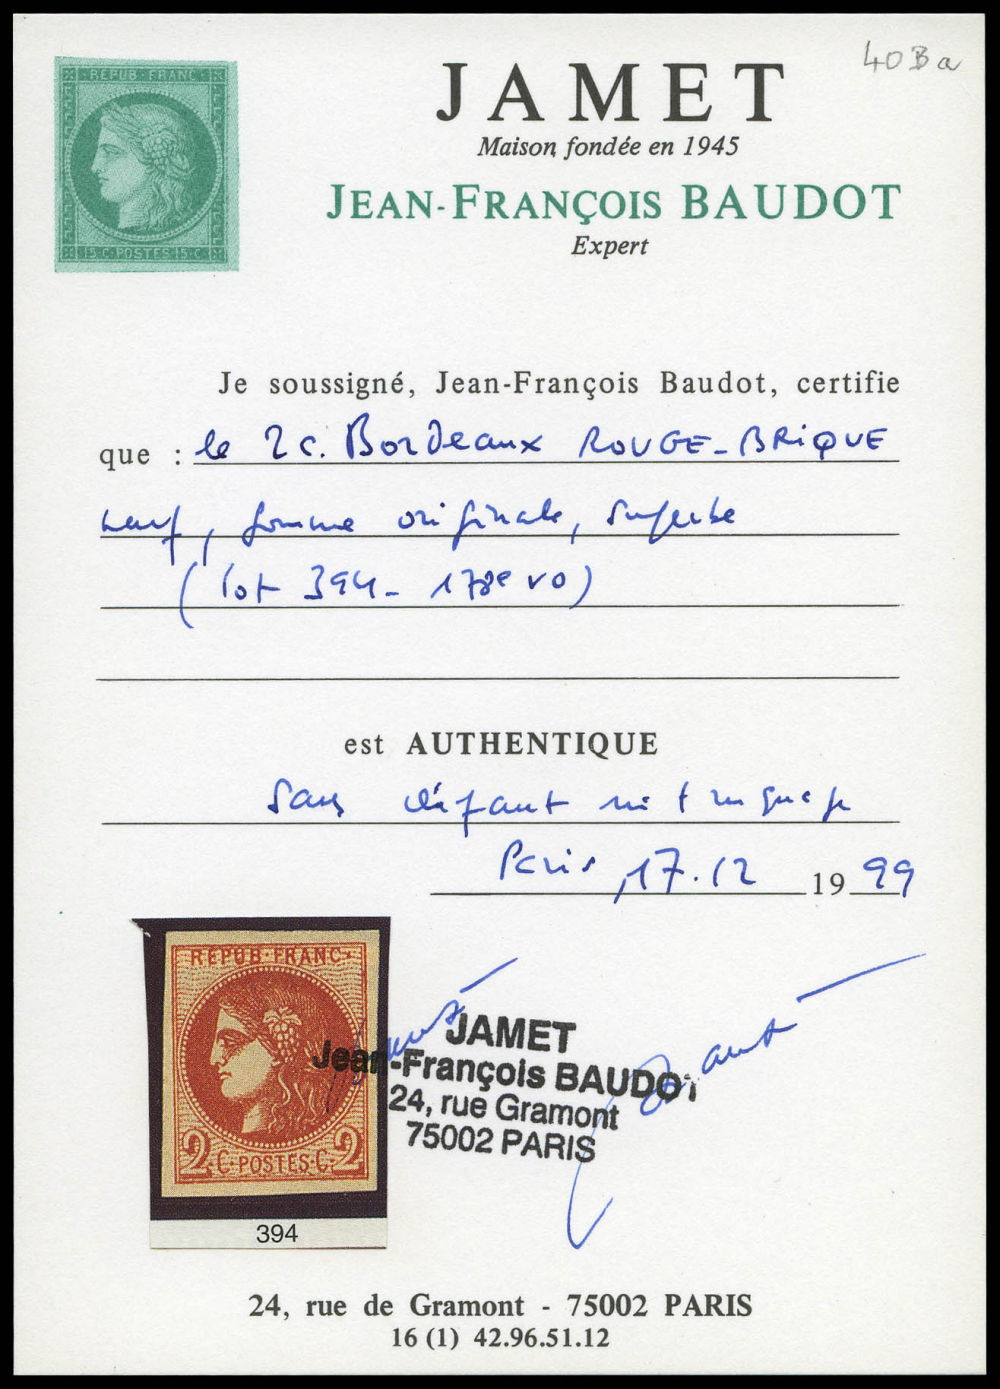 40Ba
REPUB·FRANC·
15·C·POSTES·15·C·
JAMET
Maison fondée en 1945
JEAN-FRANÇOIS BAUDOT
Expert
Je soussigné, Jean-François Baudot, certifie
que : le 2c. Bordeaux ROUGE-BRIQUE
neuf, gomme originale, superbe
(lot 394 - 178e vo)
est AUTHENTIQUE
sans défaut ni truquage
Paris, 17.12 1999
REPUB·FRANC·
2·C·POSTES·C·2
394
JAMET
Jean-François BAUDOT
24, rue Gramont
75002 PARIS
24, rue de Gramont - 75002 PARIS
16 (1) 42.96.51.12